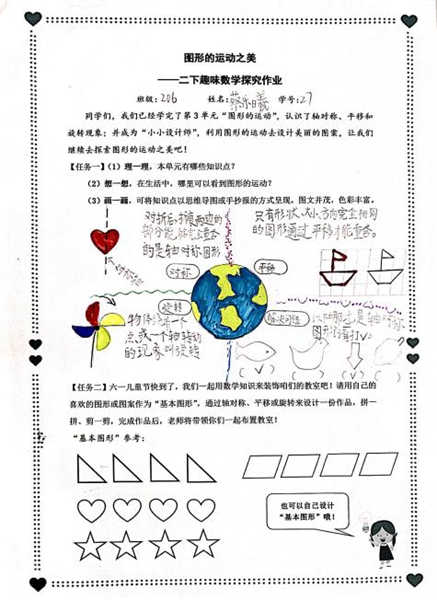 图形的运动之美
——二下趣味数学探究作业
班级:206 姓名:蔡乐曦 学号:27
同学们,我们已经学完了第3单元“图形的运动”,认识了轴对称、平移和
旋转现象;并成为“小小设计师”,利用图形的运动去设计美丽的图案,让我们
继续去探索图形的运动之美吧!
【任务一】(1)理一理,本单元有哪些知识点?
(2)想一想,在生活中,哪里可以看到图形的运动?
(3)画一画,可将知识点以思维导图或手抄报的方式呈现,图文并茂,色彩丰富。
对折后,折痕两边的
部分能够完全重合
的是轴对称图形
只有形状、大小、方向完全相同
的图形通过平移才能重合。
对称轴
对称
平移
旋转
物体绕着一个
点或一个轴转动
的现象叫旋转
解决问题
以下哪些是轴对称
图形打“√”
(√) ( ) (√) ( )
【任务二】六一儿童节快到了,我们一起用数学知识来装饰咱们的教室吧!请用自己的
喜欢的图形或图案作为“基本图形”,通过轴对称、平移或旋转来设计一份作品,拼一
拼、剪一剪,完成作品后,老师将带领你们一起布置教室!
“基本图形”参考:
也可以自己设计
“基本图形”哦!